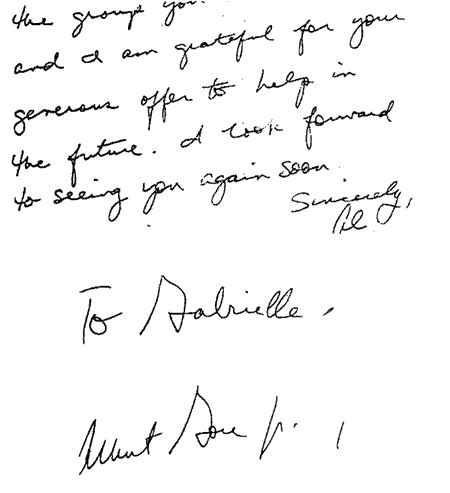 the group you
and I am grateful for your
generous offer to help in
the future. I look forward
to seeing you again soon.
Sincerely,
Al
To Gabrielle,
Albert Gore Jr.,